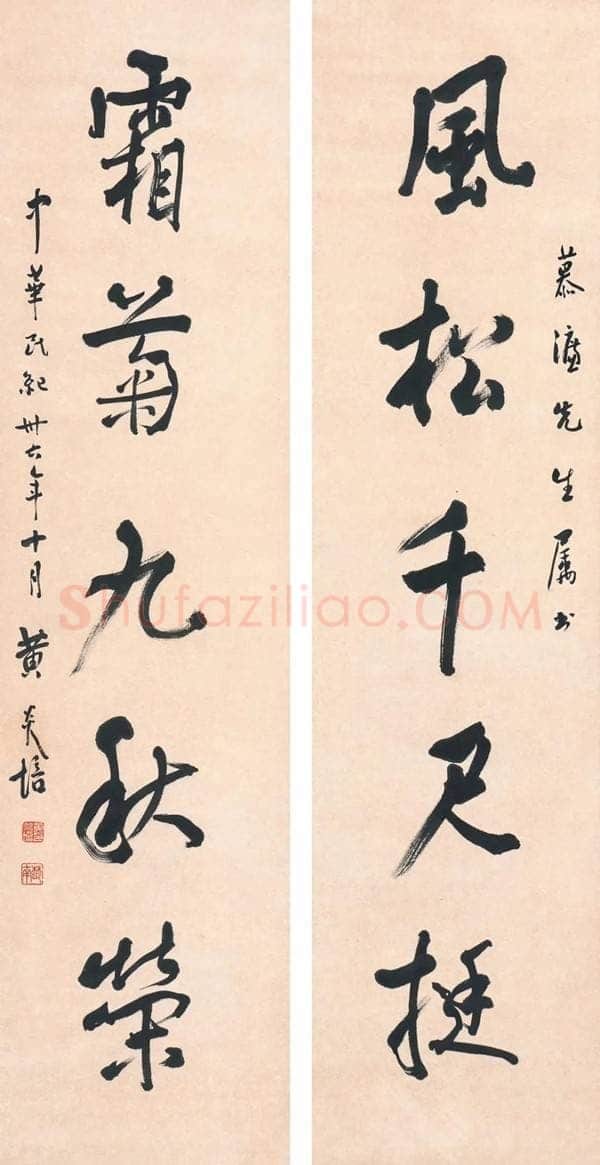 慕濂先生属书
風松千尺挺
霜菊九秋榮
中華民紀卅六年十月 黄炎培
Shufaziliao.COM